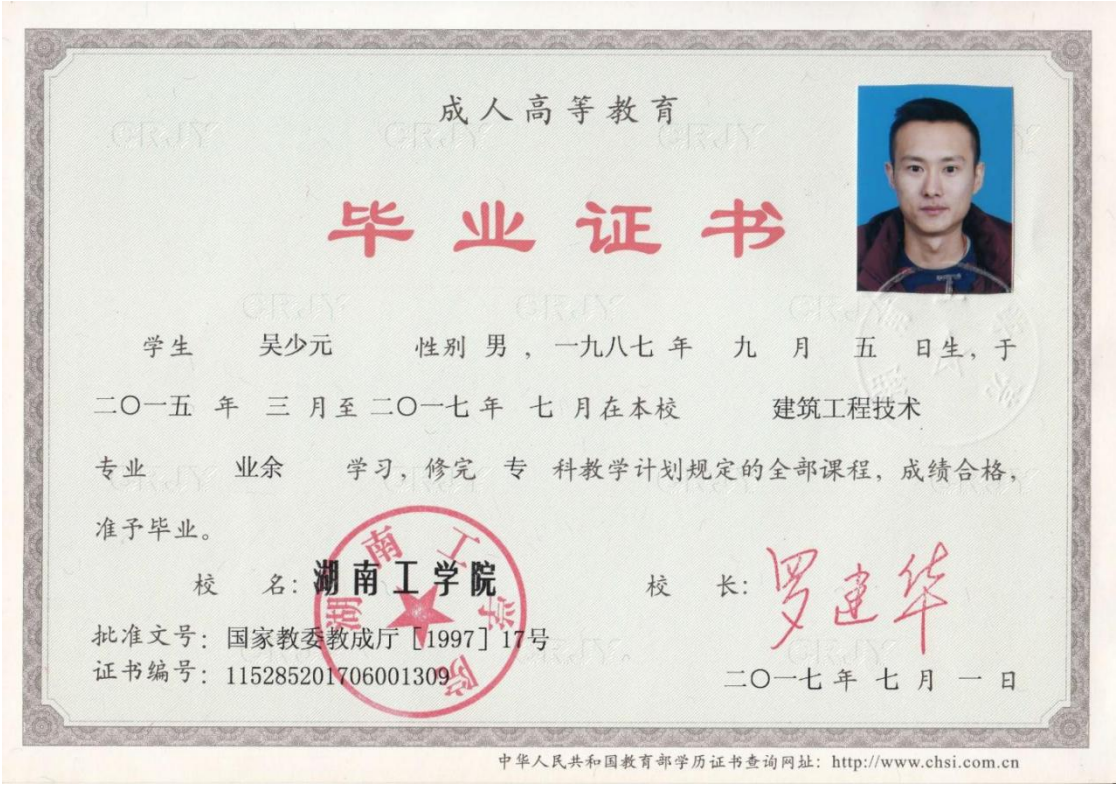 成人高等教育
毕业证书
学生 吴少元 性别 男，一九八七 年 九 月 五 日生，于
二〇一五 年 三 月至 二〇一七 年 七 月在本校 建筑工程技术
专业 业余 学习，修完 专 科教学计划规定的全部课程，成绩合格，
准予毕业。
校 名：湖南工学院
校 长：罗建华
湖南工学院
批准文号：国家教委教成厅［1997］17号
证书编号：115285201706001309
二〇一七 年 七 月 一 日
中华人民共和国教育部学历证书查询网址：http://www.chsi.com.cn
CRJY CRJY CRJY
CRJY CRJY CRJY